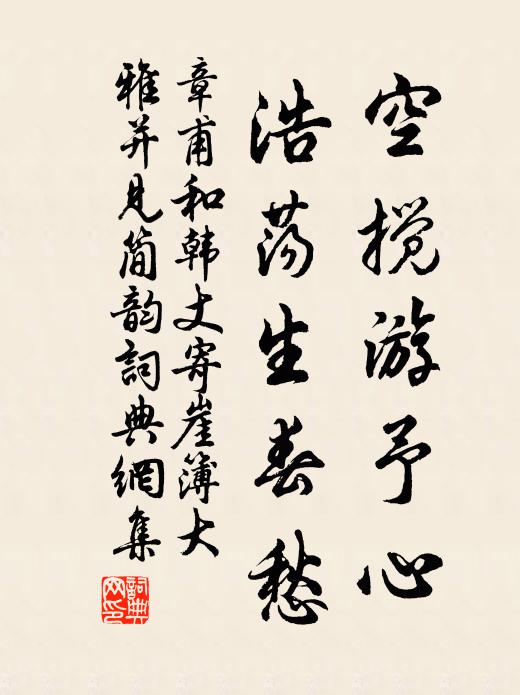 空搅游予心
浩荡生春愁
章甫和韩丈寄崖簿大
雅并见简韵詞典網集
詞典網印